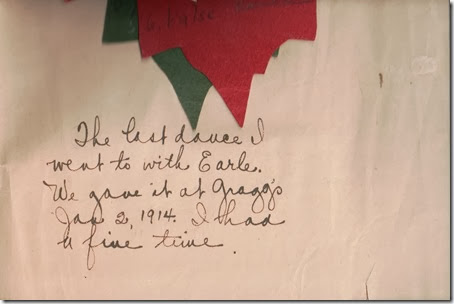 The last dance I
went to with Earle.
We gave it at Gragg's
Jan 2, 1914. I had
a fine time.